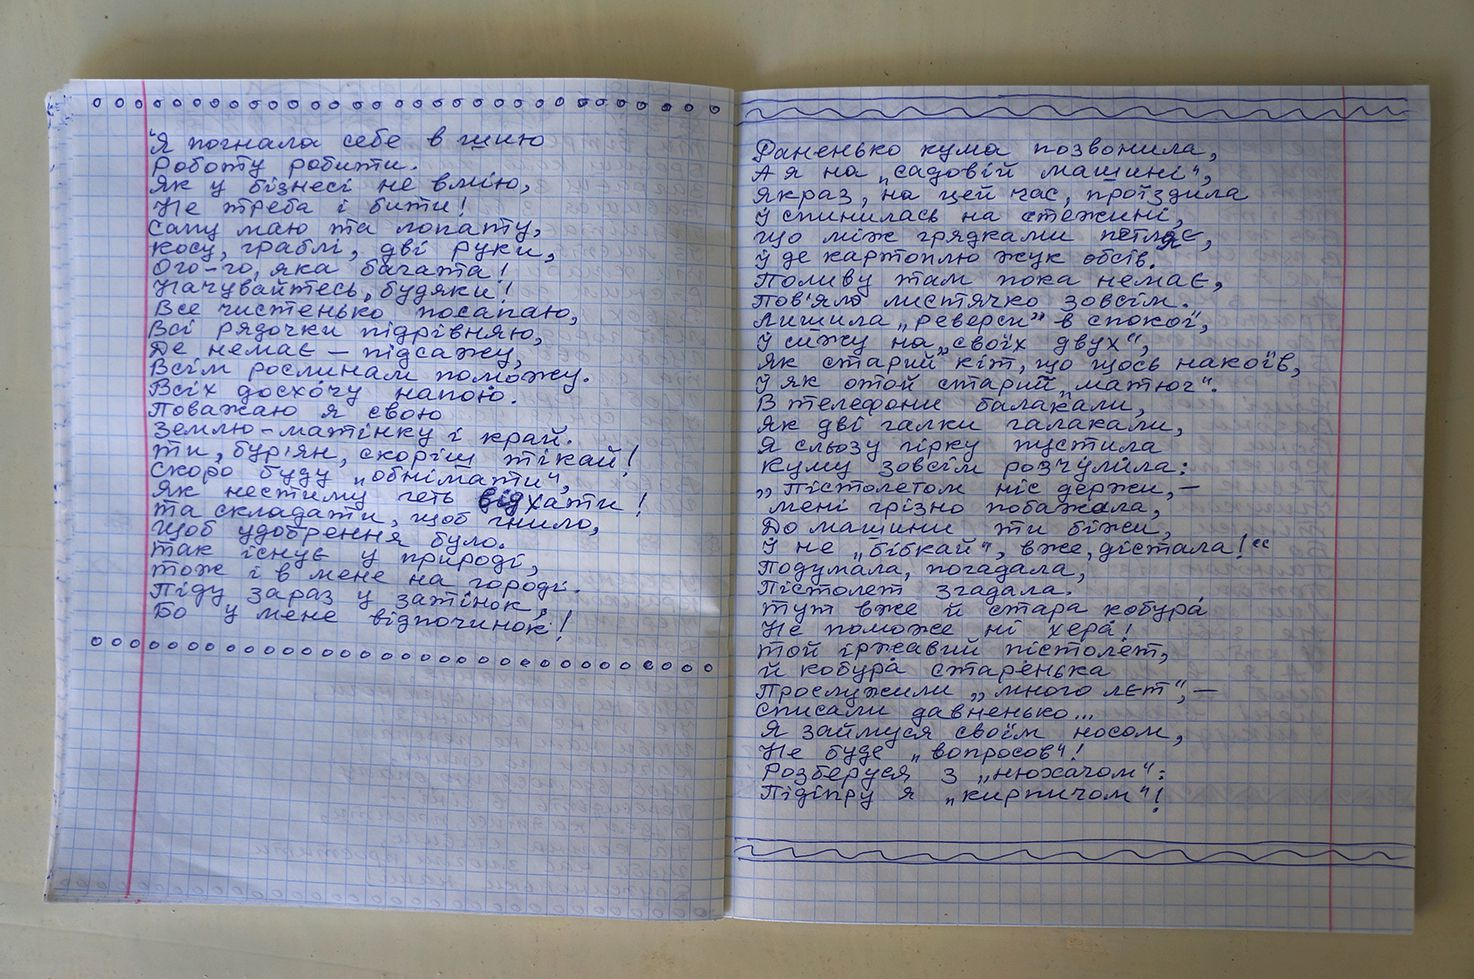 Я погнала себе в шию
Роботу робити.
Як у бізнесі не вмію,
Не треба і бити!
Сапу маю та лопату,
Косу, граблі, дві руки,
Ого-го, яка багата!
Начувайтесь, будяки!
Все чистенько посапаю,
Всі рядочки підрівняю,
Де немає – підсажу,
Всім рослинам поможу.
Всіх досхочу напою.
Поважаю я свою
Землю-матінку і край.
Ти, бур'ян, скоріш тікай!
Скоро буду „обнімати“,
Як нестиму геть від хати!
Та складати, щоб гнило,
Щоб удобрення було.
Так існує у природі,
Тож і в мене на городі.
Піду зараз у затінок,
Бо у мене відпочинок!
Раненько кума позвонила,
А я на „садовій машині“,
Якраз, на цей час, проїздила
Й спинилась на стежині,
Що між грядками петляє,
Й де картоплю жук обсів.
Поливу там пока немає,
Пов'яло листячко зовсім.
Лишила „реверси” в спокої,
Й сиджу на „своїх двух“,
Як старий кіт, що щось накоїв,
Й як отой старий „матюч“.
В телефони балакали,
Як дві галки галакали,
Я сльозу гірку пустила
Куму зовсім розчулила:
„Пістолетом ніс держи, –
Мені грізно побажала,
До машини ти біжи,
Й не „бібкай“, вже, дістала!“
Подумала, погадала,
Пістолет згадала.
Тут вже й стара кобура́
Не поможе ні хера́!
Той іржавий пістолет,
Й кобура́ старенька
Прослужили „много лєт“, –
Списали давненько...
Я займуся своїм носом,
Не буде „вопросов“!
Розберуся з „нюхачом“:
Підіпру я „кирпичом“!